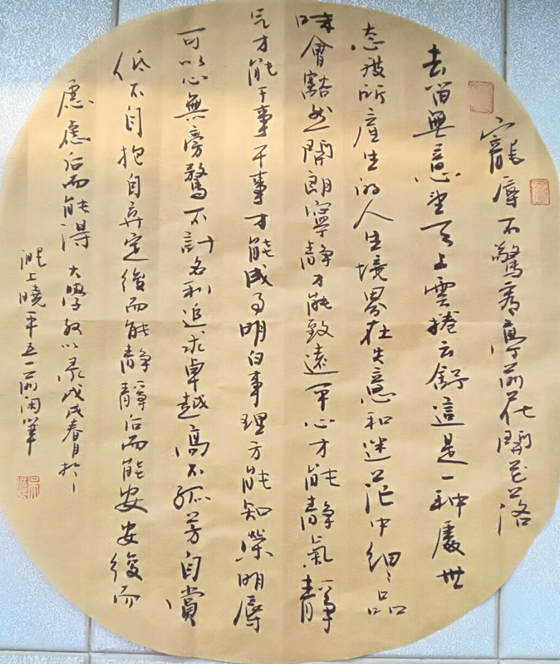 寵辱不驚看庭前花開花落
去留無意望天上雲捲云舒這是一种處世
态度所產生的人生境界在失意和迷茫中细々品
味會豁然開朗寧静才能致遠平心才能静氣靜
气才能干事干事才能成事明白事理方能知榮明辱
可以心無旁騖不計名利追求卓越高不孤芳自賞
低不自抱自弃定後而能静靜后而能安安後而
慮慮后而能得 大學 以录戊戌春月於
上曉平五一前闲筆